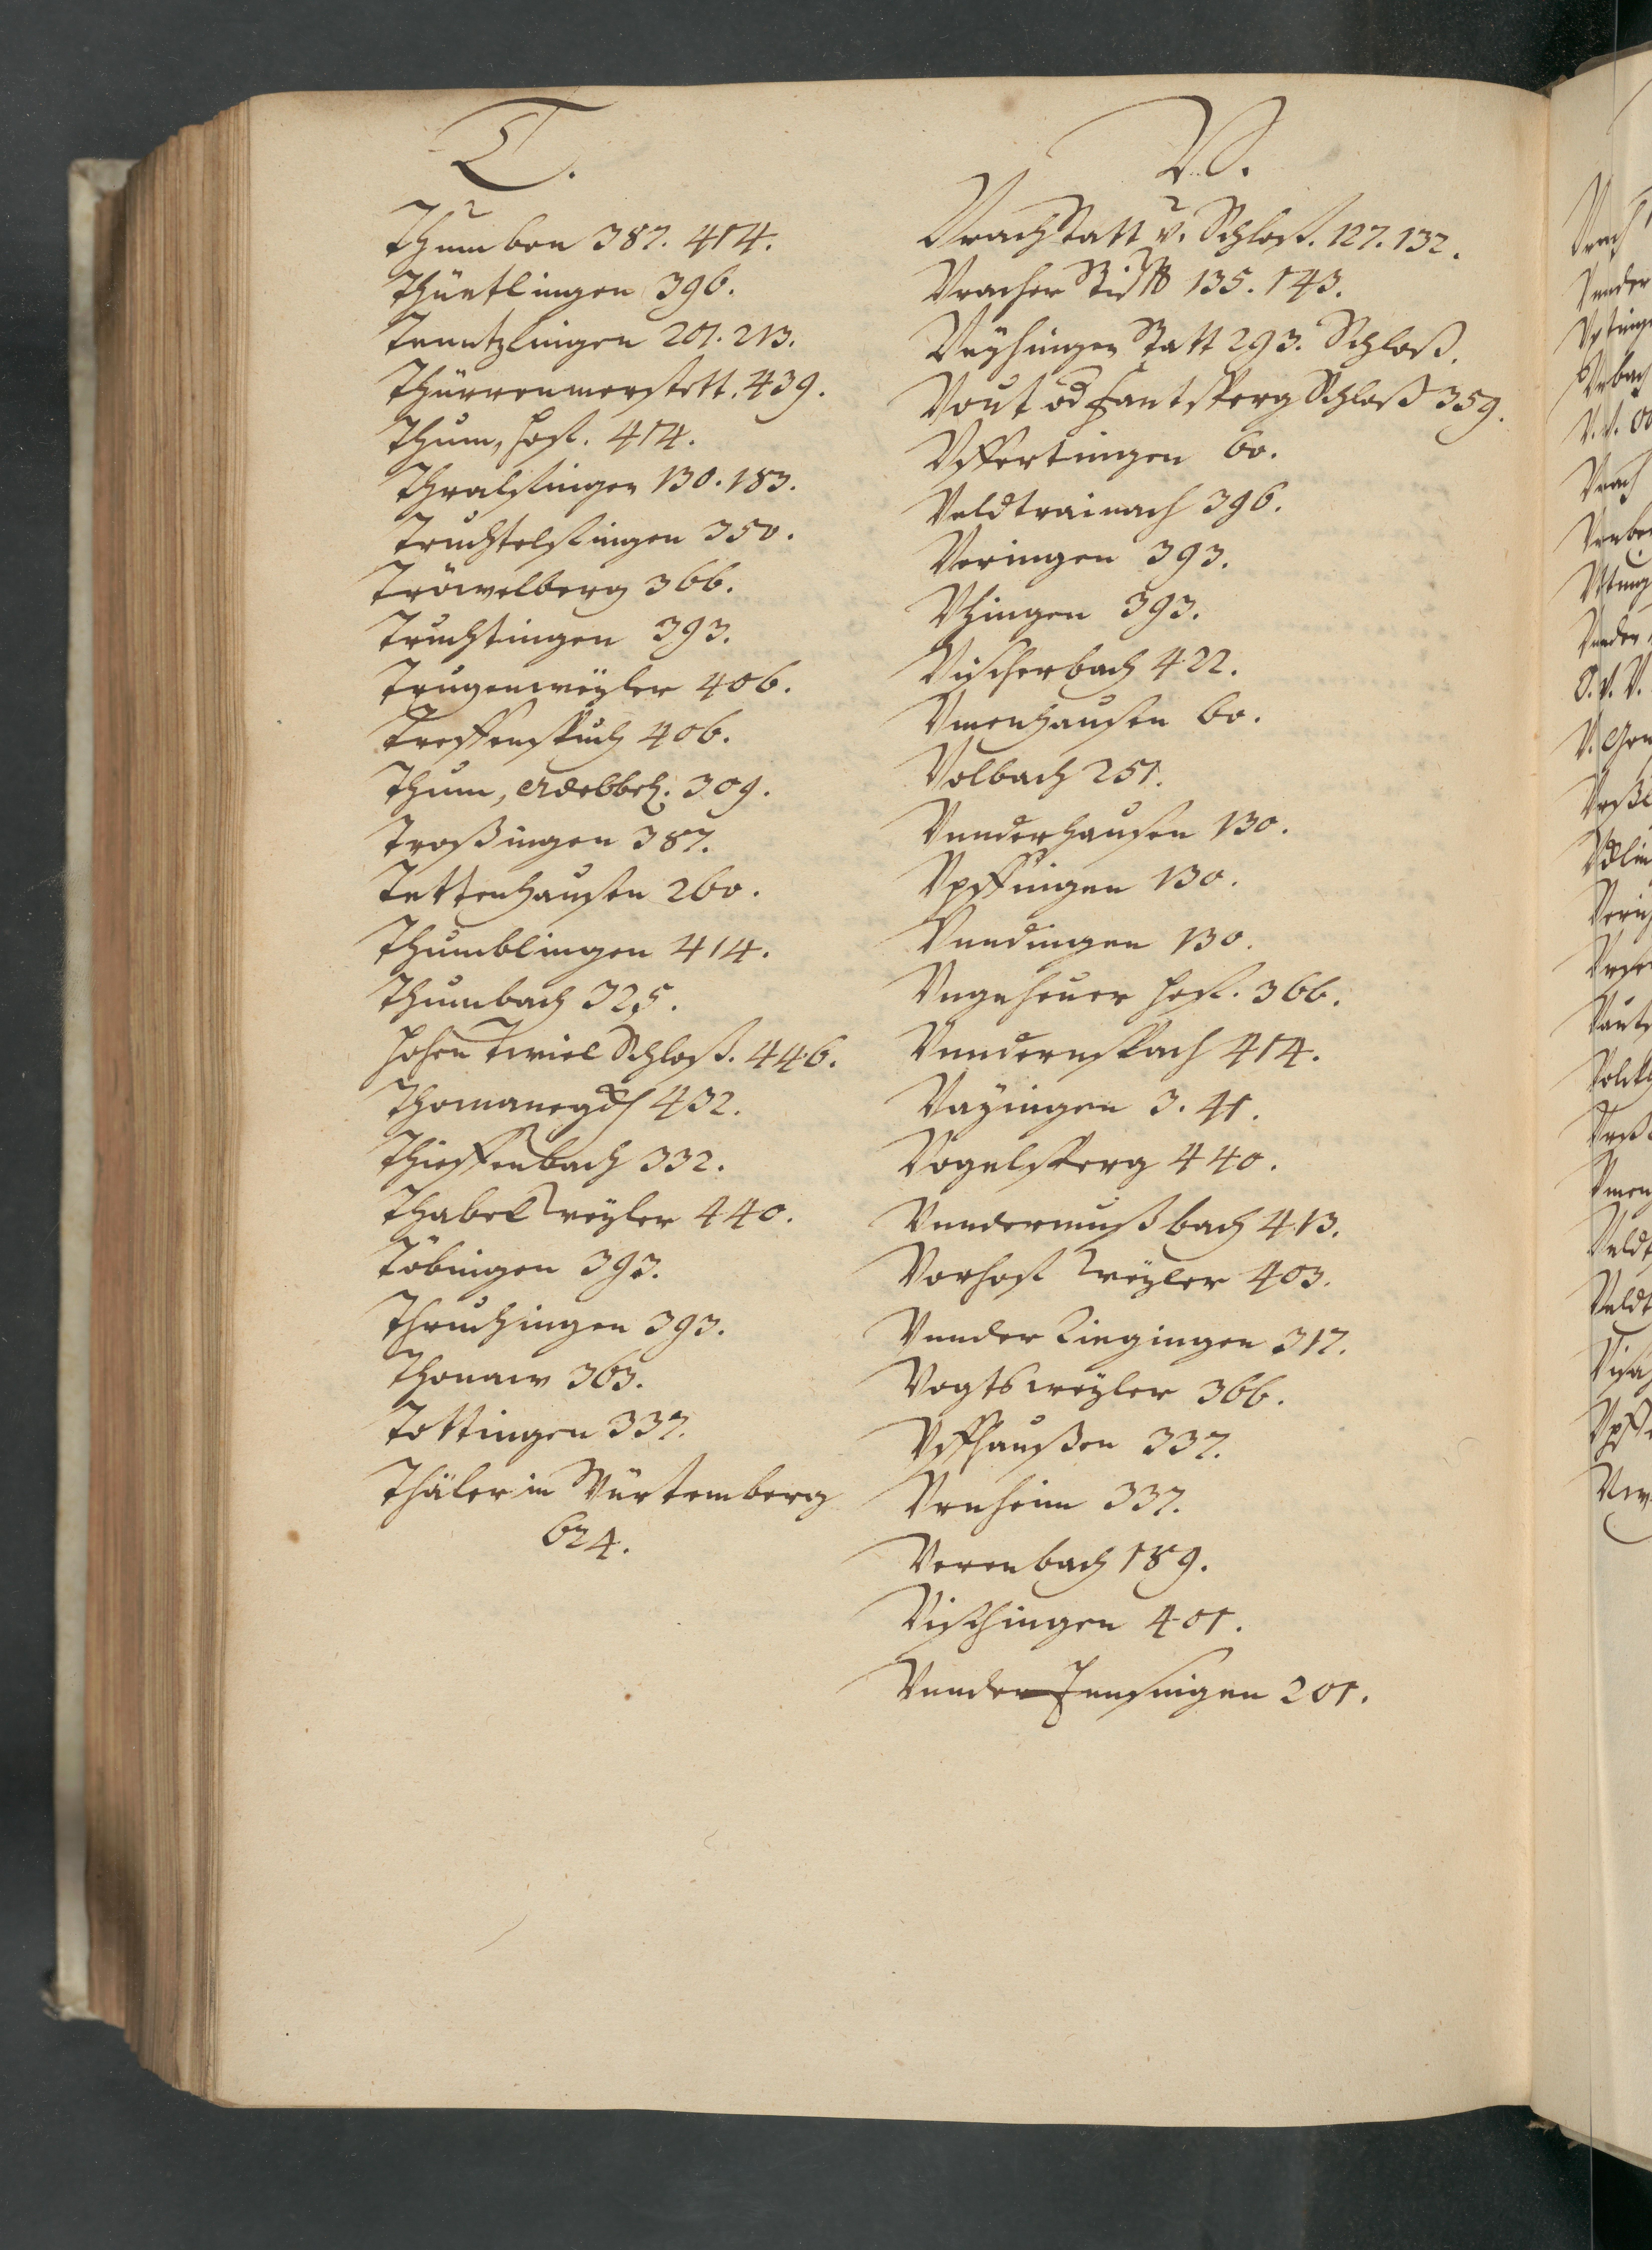 T.
Thumben 387. 414.
Thüetlingen 396.
Tenntzlingen 201. 213.
Thürrenmerstett. 439.
Thum, hoff. 414.
Thralfingen 130. 183.
Truchtelfingen 350.
Tröwelberg 366.
Truchtingen 393.
Trugenweÿler 406.
Treffenspuch 406.
Thum, 309.
Troßingen 387.
Tettenhausen 260.
Thumblingen 414.
Thumbach 325.
Hohen Twiel Schloß. 446.
432.
Thieffenbach 332.
Thabel Weÿler 440.
Töbingen 393.
Thruchingen 393.
Thonaw 363.
Tottingen 337.
Thäler in Würtemberg
624.
V.
Vrach Statt v. Schloß. 127. 132.
Vracher 135. 143.
Vayhingen Statt 293. Schloß.
Vout od Fantsperg Schloß 359.
Vffertingen 60.
Veldtrainach 396.
Veringen 393.
Vhingen 393.
Vischerbach 422.
Vmenhausen 60.
Volbach 251.
Vnnderhausen 130.
Vpffingen 130.
Vnndingen 130.
Vngeheuer hoff. 366.
Vnndernspach 414.
Vaÿingen 3. 41.
Vogelsperg 440.
Vndermußbach 413.
Vorhost Weÿler 403.
Vnnder Riegingen 317.
Vogtsweyler 366.
Vffhaußen 337.
Vrnheim 337.
Verenbach 189.
Vischingen 401.
Vnnder Jensingen 201.